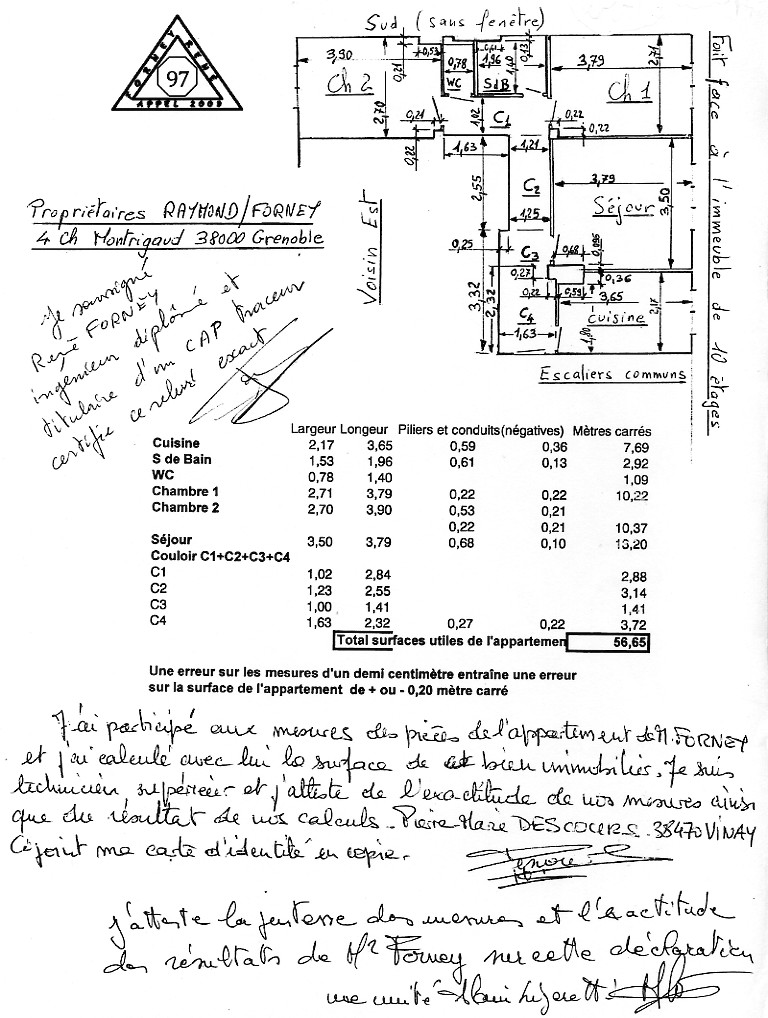 Sud (sans fenêtre)
FORNEY RENE
97
APPEL 2003
3,90
0,53
0,21
0,78
WC
0,61
1,96
1,40
SdB
0,13
3,79
2,71
Ch 2
Ch 1
2,70
0,21
0,22
1,02
C1
0,22
0,22
1,63
1,21
2,55
C2
1,25
3,79
Séjour
3,50
0,25
C3
0,68
0,095
0,27
0,36
3,32
2,32
0,22
0,59
3,65
2,17
C4
1,63
cuisine
1,80
Escaliers communs
Voisin Est
Toit face à l'immeuble de 10 étages
Propriétaires RAYMOND/FORNEY
4 Ch Montrigaud 38000 Grenoble
Je soussigné
René FORNEY
ingénieur diplômé et
titulaire d'un CAP traceur
certifie ce relevé exact
Largeur Longeur Piliers et conduits(négatives) Mètres carrés
Cuisine 2,17 3,65 0,59 0,36 7,69
S de Bain 1,53 1,96 0,61 0,13 2,92
WC 0,78 1,40 1,09
Chambre 1 2,71 3,79 0,22 0,22 10,22
Chambre 2 2,70 3,90 0,53 0,21
0,22 0,21 10,37
Séjour 3,50 3,79 0,68 0,10 13,20
Couloir C1+C2+C3+C4
C1 1,02 2,84 2,88
C2 1,23 2,55 3,14
C3 1,00 1,41 1,41
C4 1,63 2,32 0,27 0,22 3,72
Total surfaces utiles de l'appartemen 56,65
Une erreur sur les mesures d'un demi centimètre entraîne une erreur
sur la surface de l'appartement de + ou - 0,20 mètre carré
J'ai participé aux mesures des pièces de l'appartement de M. FORNEY
et j'ai calculé avec lui la surface de ce bien immobilier. Je suis
technicien supérieur et j'atteste de l'exactitude de nos mesures ainsi
que du résultat de nos calculs. Pierre-Marie DESCOURS. 38470 VINAY
Ci joint ma carte d'identité en copie.
j'atteste la justesse des mesures et l'exactitude
des résultats de Mr Forney sur cette déclaration